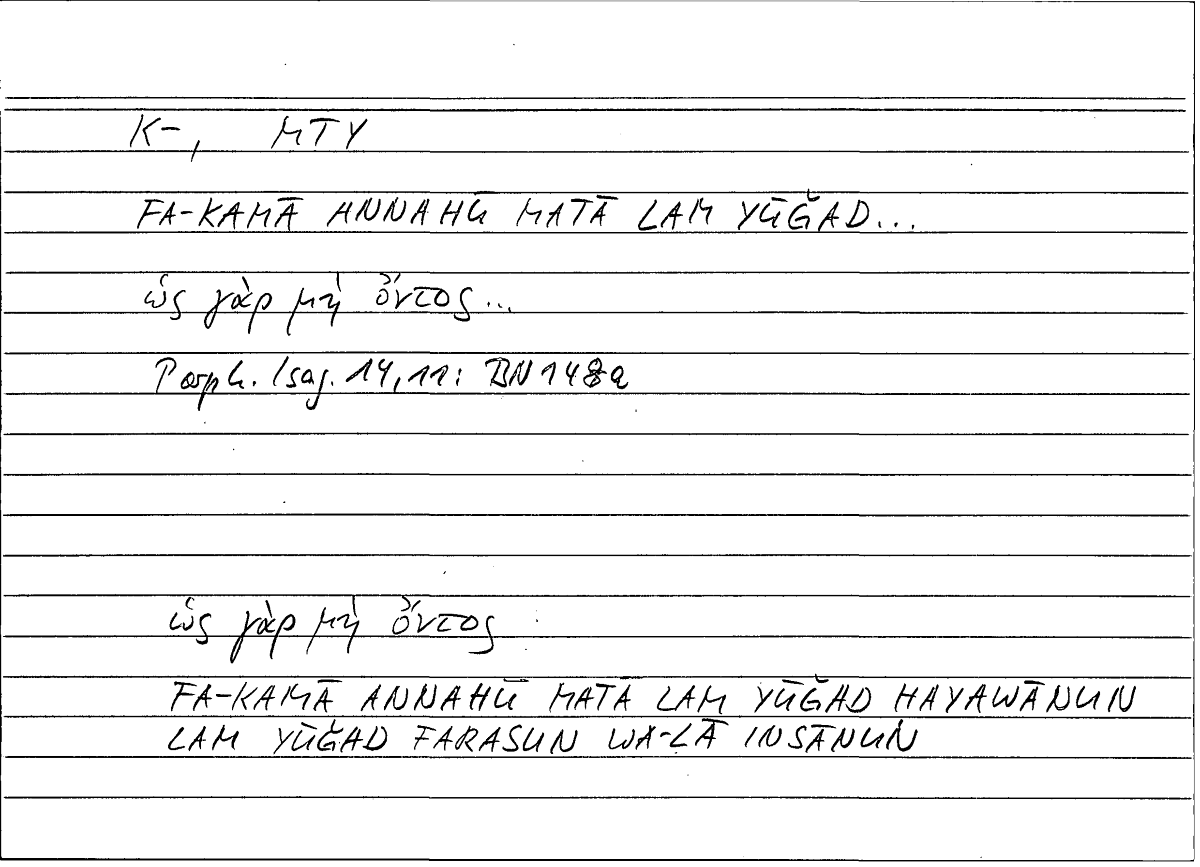 K-, MTY
FA-KAMĀ ANNAHŪ MATĀ LAM YŪǦAD...
ὡς γὰρ μὴ ὄντος...
Porph. Isag. 14,11: BN 148a
ὡς γὰρ μὴ ὄντος
FA-KAMĀ ANNAHŪ MATĀ LAM YŪǦAD HAYAWĀNUN
LAM YŪǦAD FARASUN WA-LĀ INSĀNUN